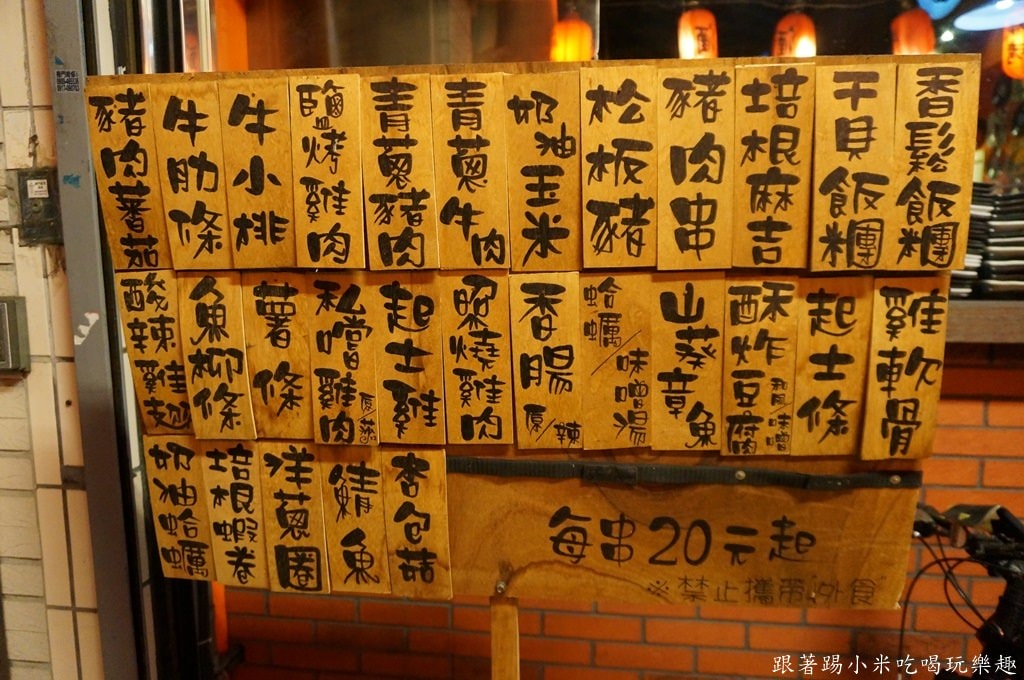 香鬆飯糰
干貝飯糰
培根麻吉
豬肉串
松板豬
奶油玉米
青蔥牛肉
青蔥豬肉
鹽烤雞肉
牛小排
牛肋條
豬肉蕃茄
雞軟骨
起士條
酥炸豆腐 和風/味噌
山葵章魚
蛤蠣/味噌湯
香腸 原/辣
照燒雞肉
起士雞
私嚐雞肉 原/莎
薯條
魚柳條
酸辣雞翅
杏包菇
鯖魚
洋蔥圈
培根蝦卷
奶油蛤蠣
每串20元起
※禁止攜帶"外食"
跟著踢小米吃喝玩樂趣